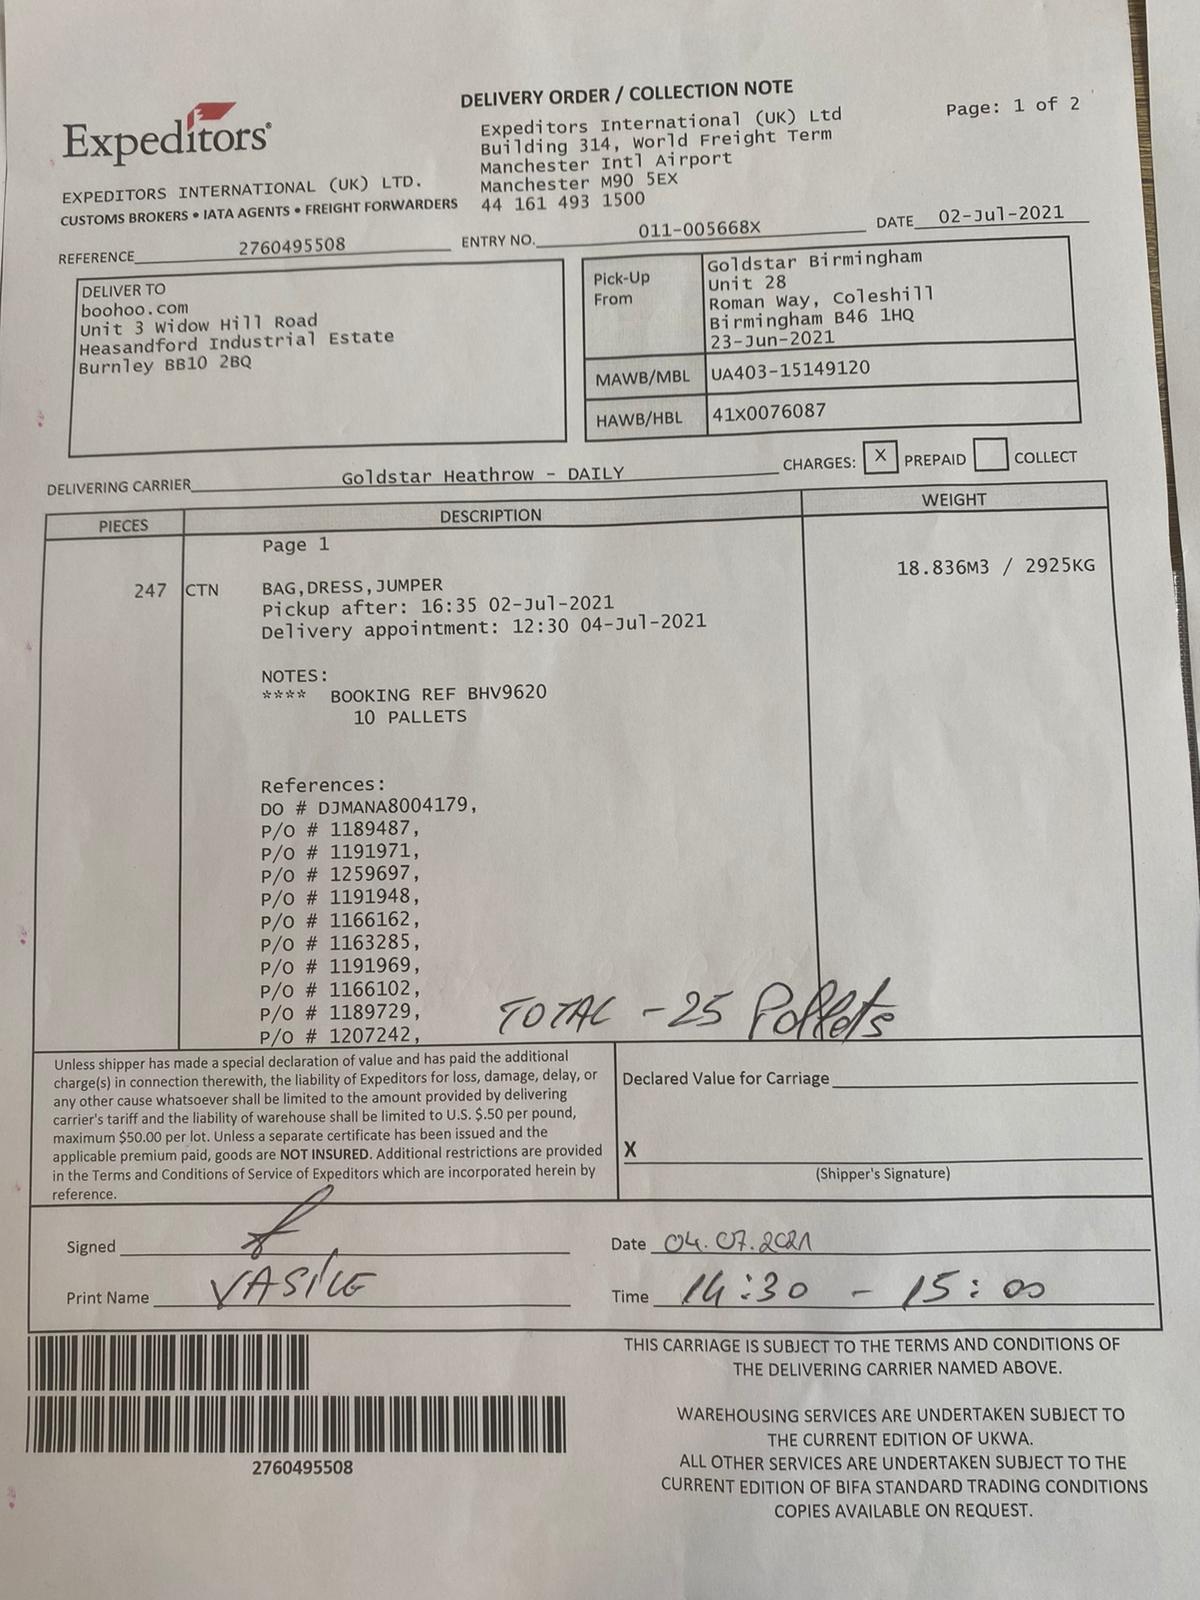 DELIVERY ORDER / COLLECTION NOTE
Page: 1 of 2
Expeditors®
Expeditors International (UK) Ltd
Building 314, World Freight Term
Manchester Intl Airport
Manchester M90 5EX
44 161 493 1500
EXPEDITORS INTERNATIONAL (UK) LTD.
CUSTOMS BROKERS • IATA AGENTS • FREIGHT FORWARDERS
REFERENCE 2760495508 ENTRY NO. 011-005668X DATE 02-Jul-2021
DELIVER TO
boohoo.com
Unit 3 Widow Hill Road
Heasandford Industrial Estate
Burnley BB10 2BQ
Pick-Up
From
Goldstar Birmingham
Unit 28
Roman Way, Coleshill
Birmingham B46 1HQ
23-Jun-2021
MAWB/MBL UA403-15149120
HAWB/HBL 41X0076087
DELIVERING CARRIER Goldstar Heathrow - DAILY CHARGES: X PREPAID COLLECT
PIECES DESCRIPTION WEIGHT
Page 1
18.836M3 / 2925KG
247 CTN BAG,DRESS,JUMPER
Pickup after: 16:35 02-Jul-2021
Delivery appointment: 12:30 04-Jul-2021
NOTES:
**** BOOKING REF BHV9620
10 PALLETS
References:
DO # DJMANA8004179,
P/O # 1189487,
P/O # 1191971,
P/O # 1259697,
P/O # 1191948,
P/O # 1166162,
P/O # 1163285,
P/O # 1191969,
P/O # 1166102,
P/O # 1189729,
P/O # 1207242,
TOTAL - 25 Pallets
Unless shipper has made a special declaration of value and has paid the additional
charge(s) in connection therewith, the liability of Expeditors for loss, damage, delay, or
any other cause whatsoever shall be limited to the amount provided by delivering
carrier's tariff and the liability of warehouse shall be limited to U.S. $.50 per pound,
maximum $50.00 per lot. Unless a separate certificate has been issued and the
applicable premium paid, goods are NOT INSURED. Additional restrictions are provided
in the Terms and Conditions of Service of Expeditors which are incorporated herein by
reference.
Declared Value for Carriage
X
(Shipper's Signature)
Signed
Date 04.07.2021
Print Name VASILE
Time 14:30 - 15:00
2760495508
THIS CARRIAGE IS SUBJECT TO THE TERMS AND CONDITIONS OF
THE DELIVERING CARRIER NAMED ABOVE.
WAREHOUSING SERVICES ARE UNDERTAKEN SUBJECT TO
THE CURRENT EDITION OF UKWA.
ALL OTHER SERVICES ARE UNDERTAKEN SUBJECT TO THE
CURRENT EDITION OF BIFA STANDARD TRADING CONDITIONS
COPIES AVAILABLE ON REQUEST.